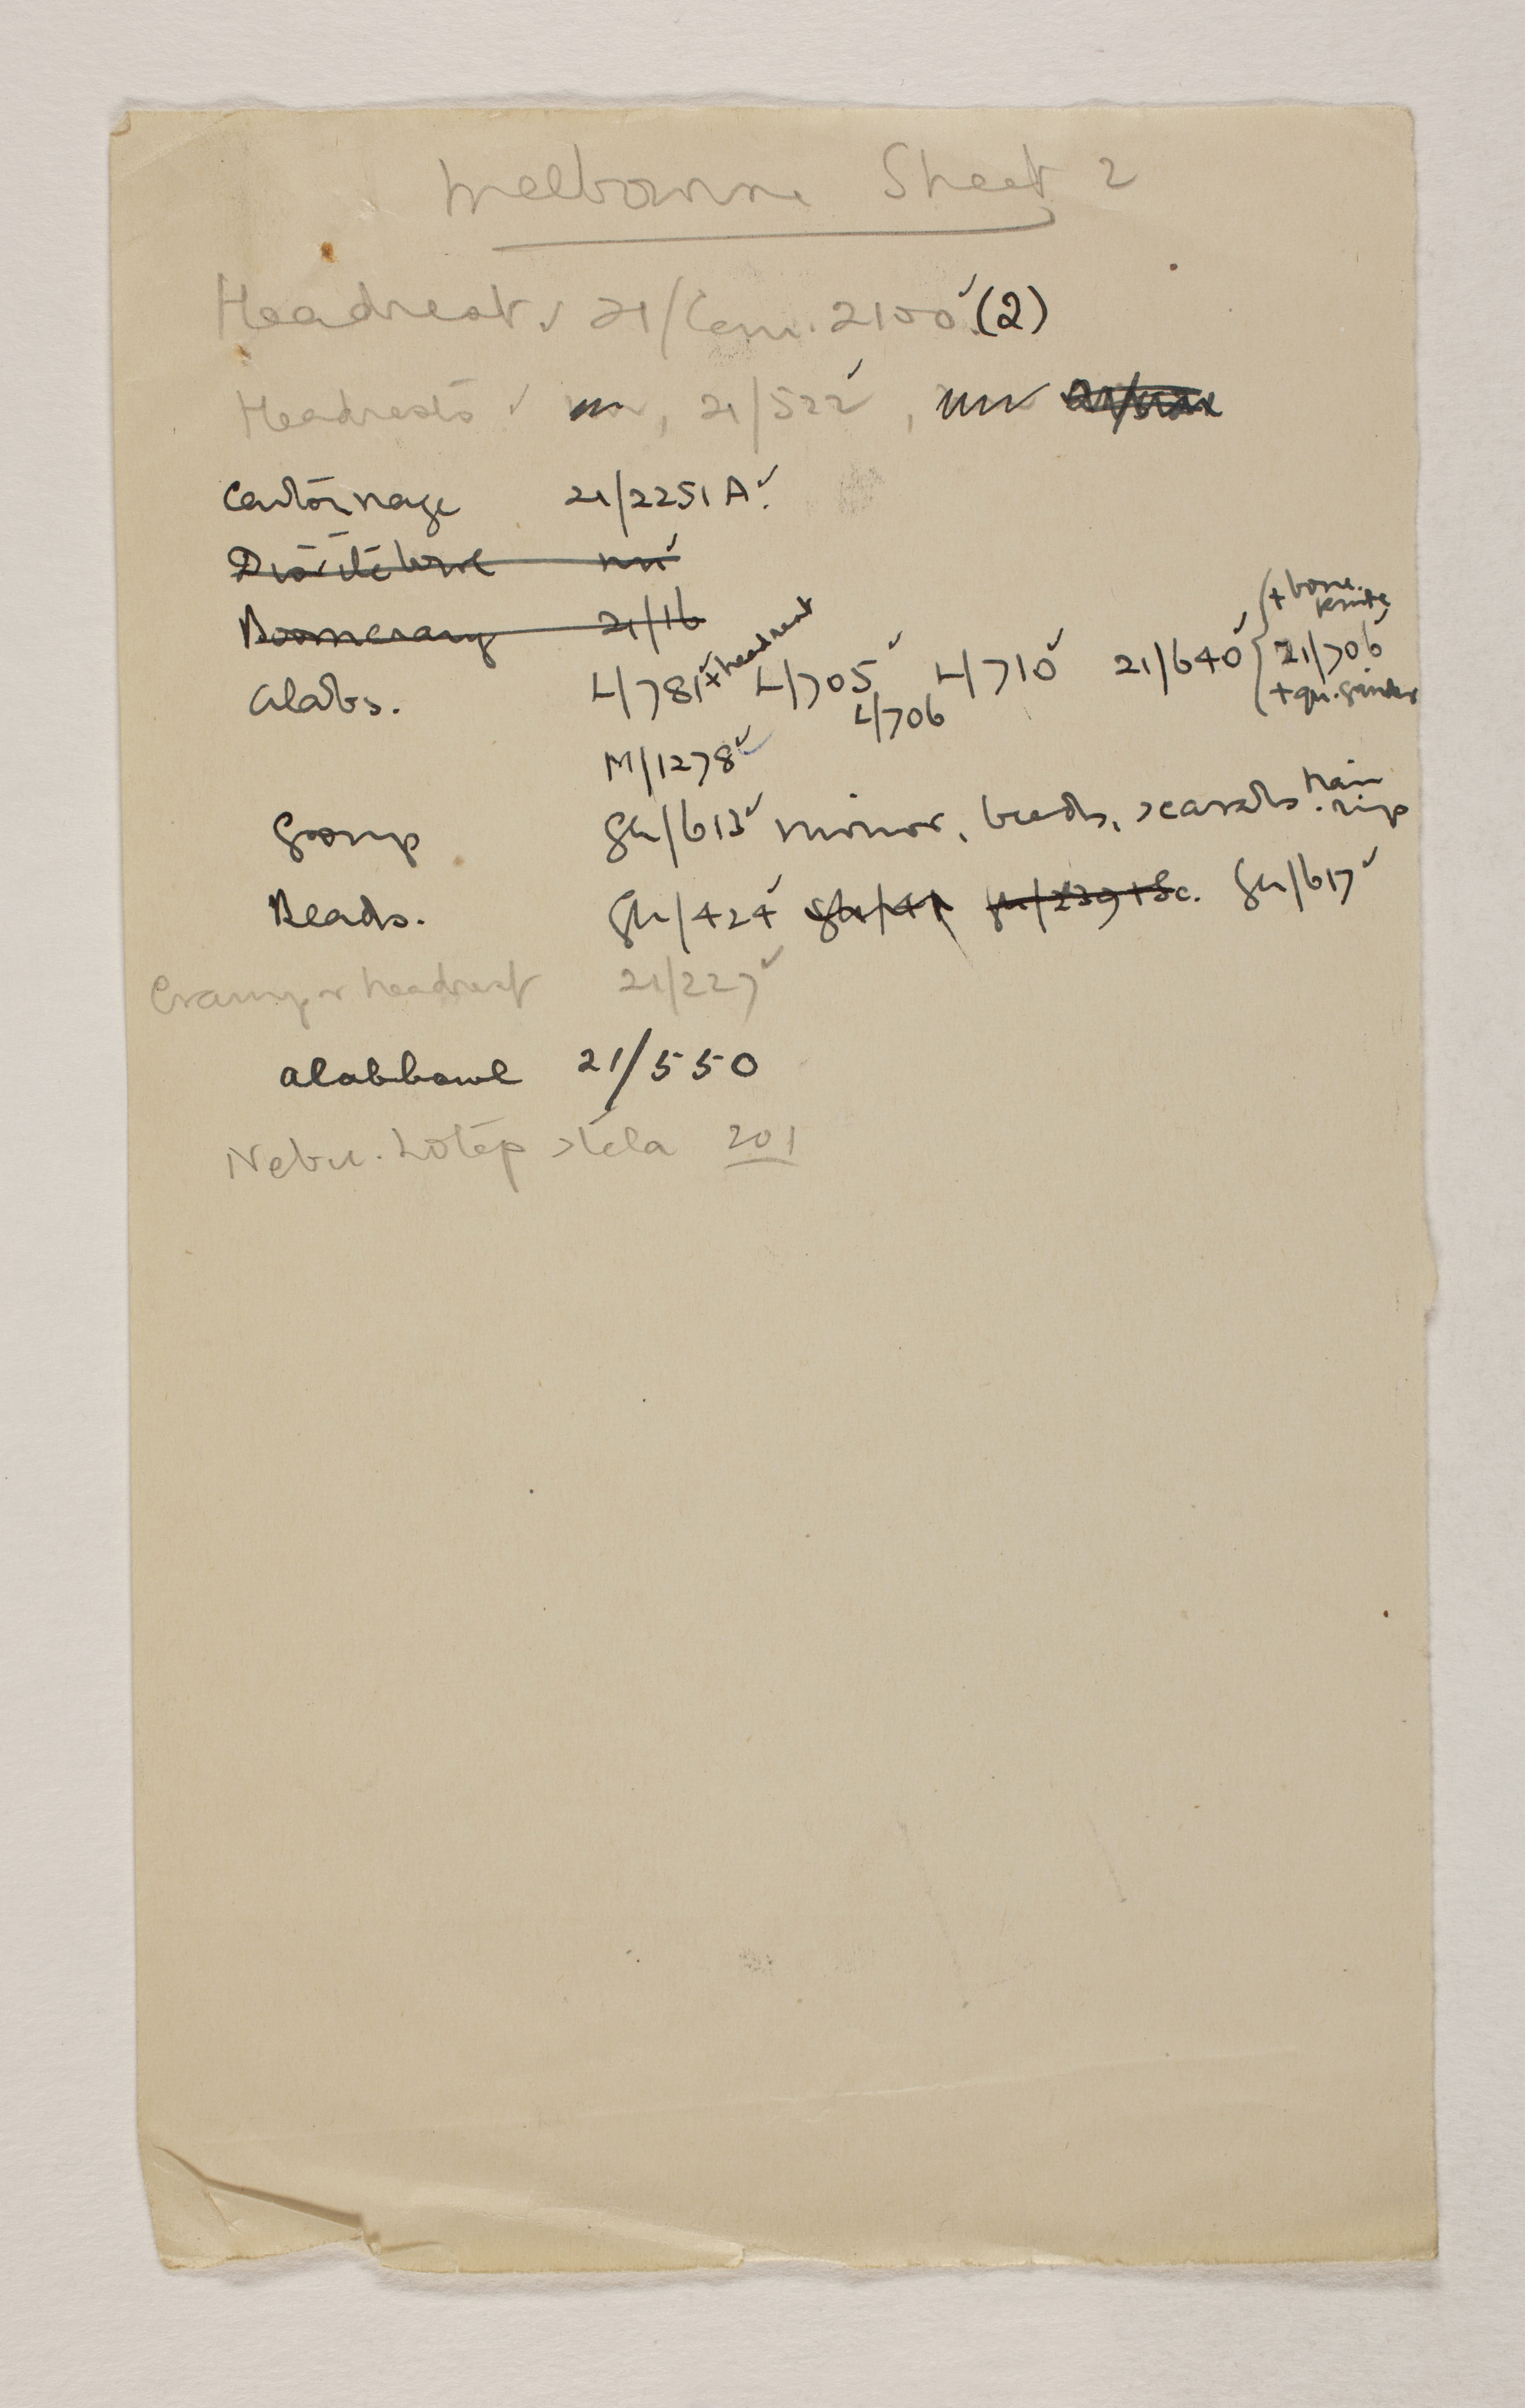 Melbourne Sheet 2
Headrest ✓ 21/Cem. 2100 ✓ (2)
Headrests ✓ , 21/522 ✓ ,
Cartonnage 21/2251 A ✓.
Diorite bowl
Boomerang 21/16
Alabs. L/781 ✓ + headrest L/705 ✓ L/710 ✓ 21/640 ✓ { + bone. knife,
21/706 ✓
+ qu. grinder
L/706
M/1278 ✓
Group Gu/613 ✓ mirror, beads, scarabs. hair
Beads. Gu/424 ✓ Gu/41 Gu/239 + Sc. Gu/617 ✓
headrest 21/227 ✓
Alab bowl 21/550
Nebu. hotep stela 201